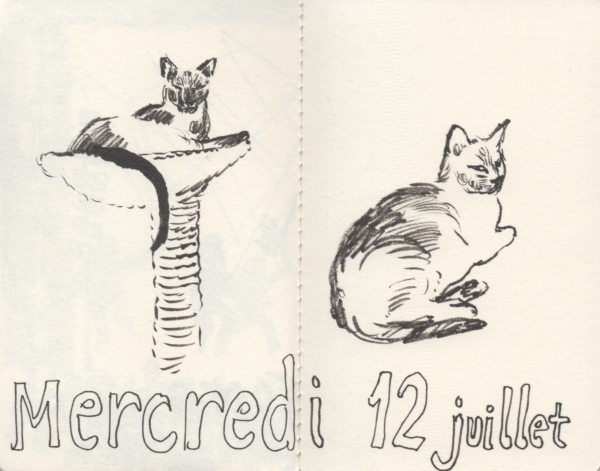 Mercredi 12 juillet